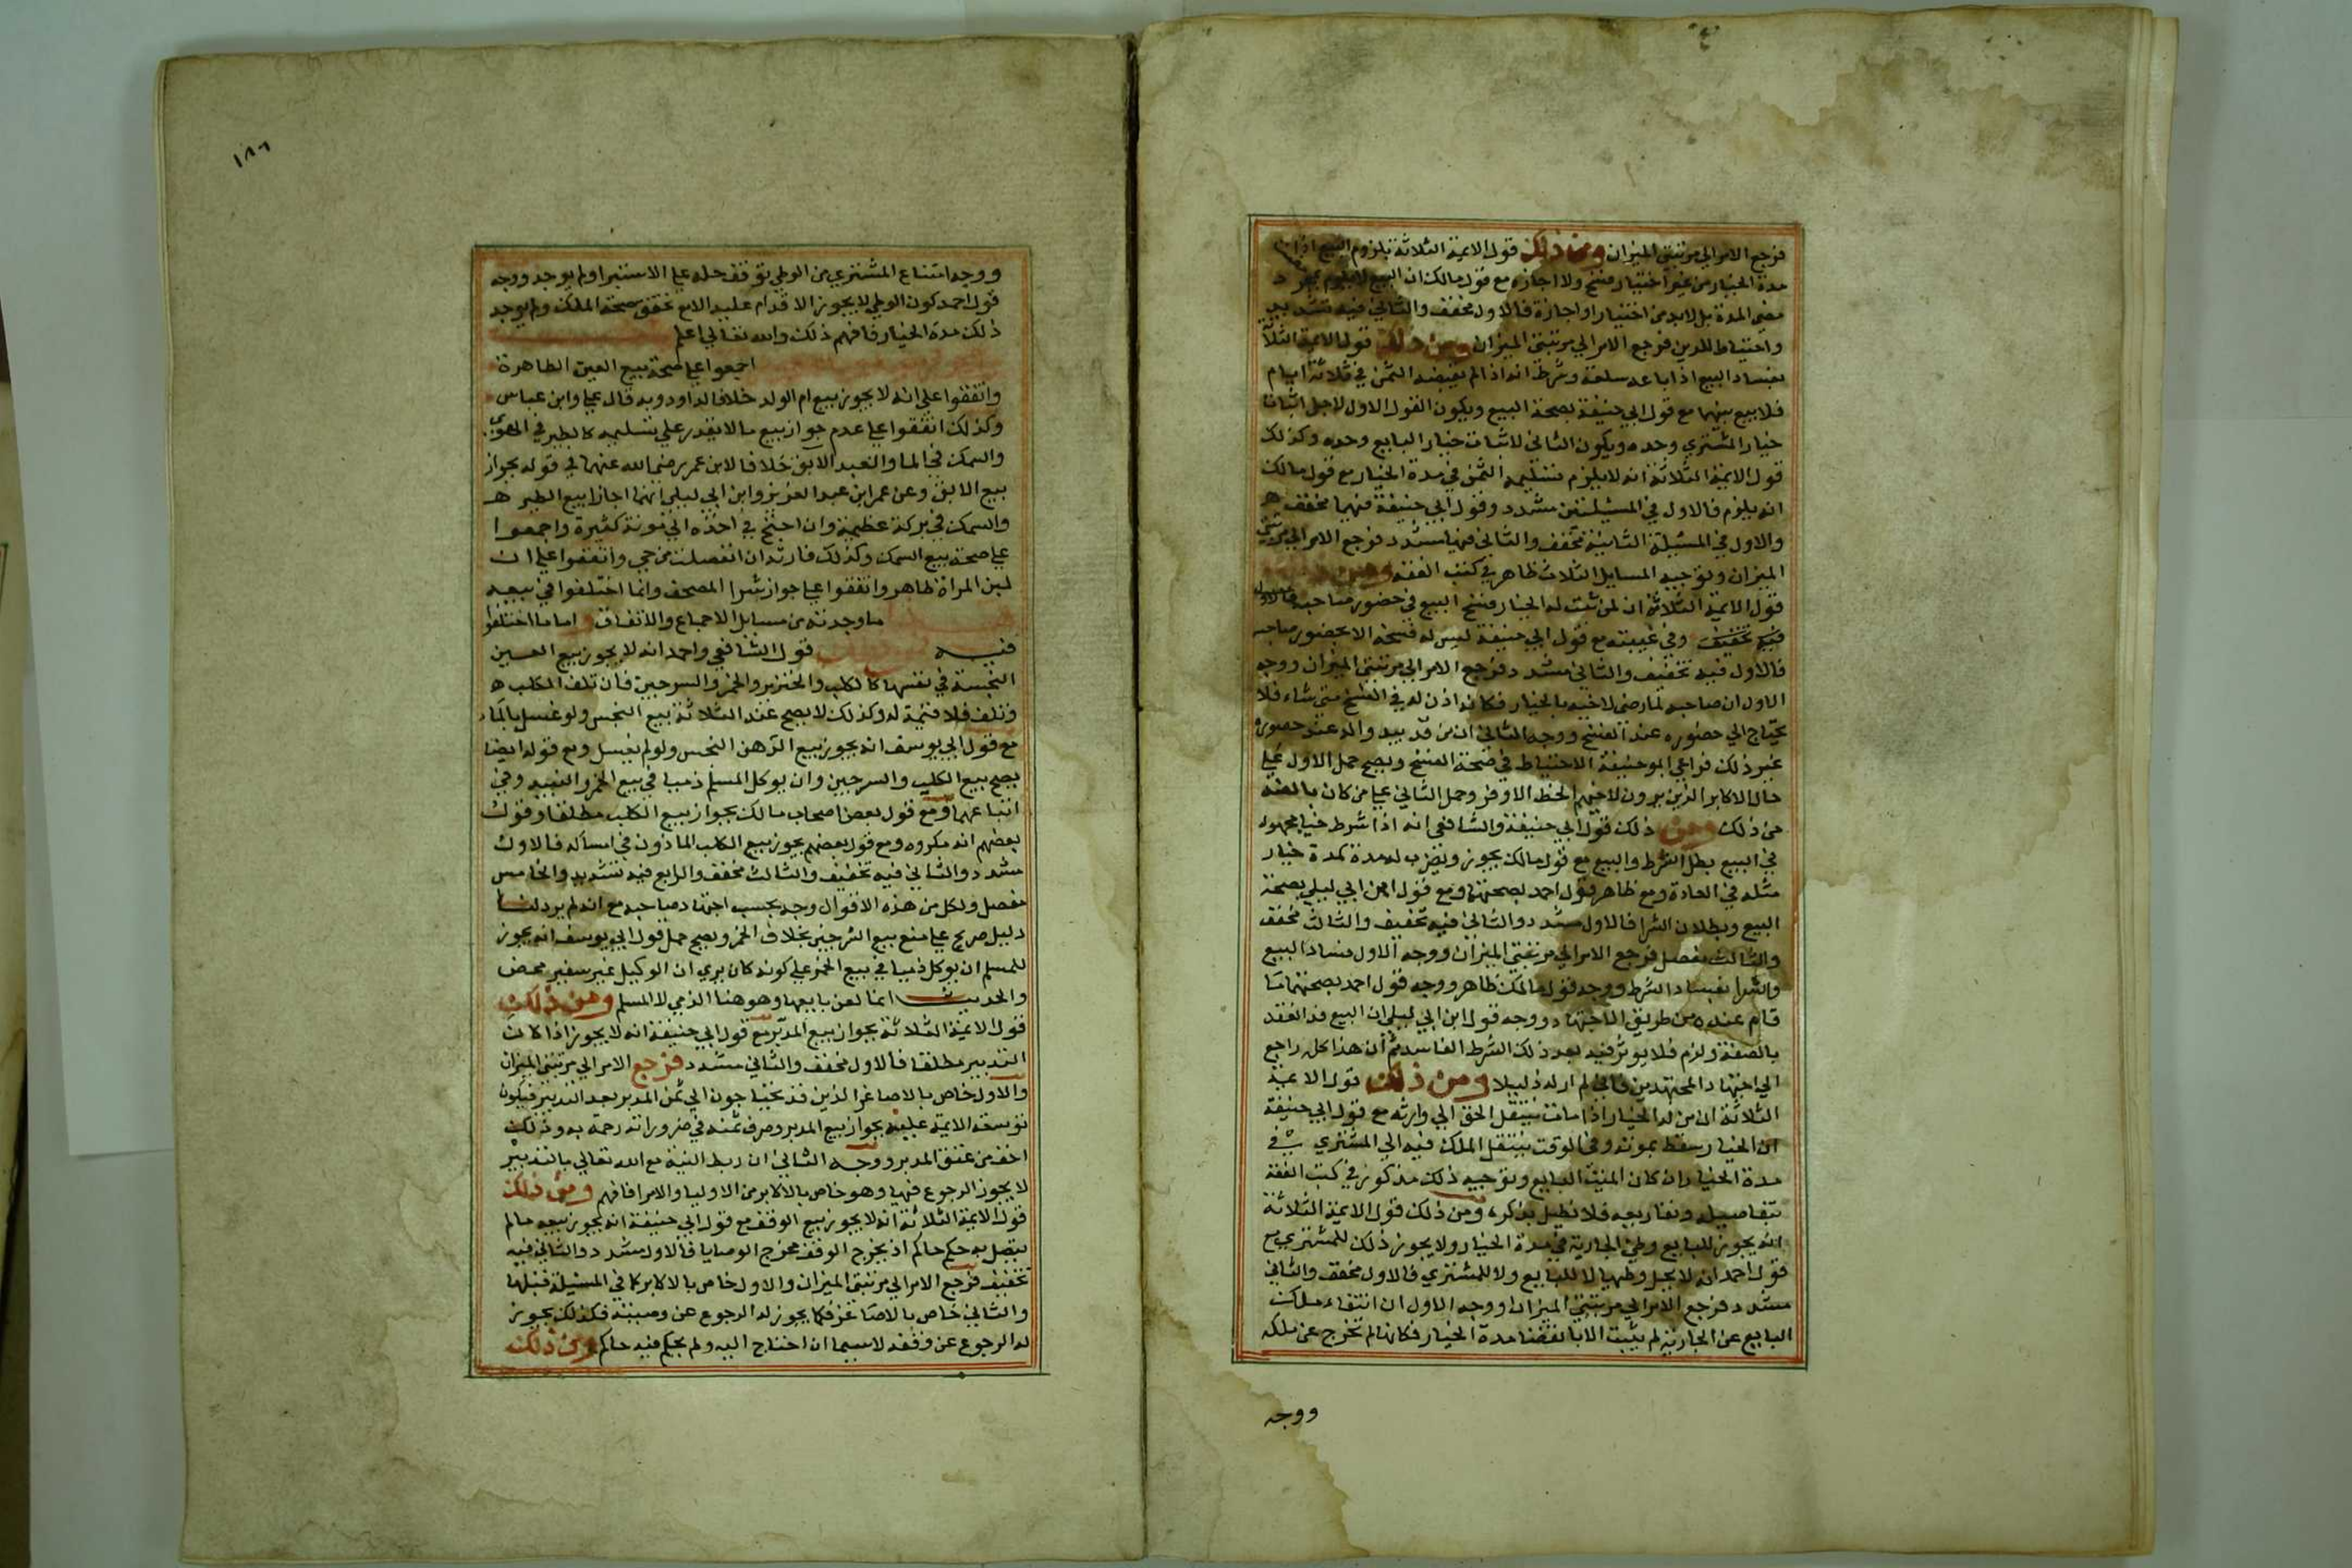 فرجع الامر الي مرتبتي الميزان ومن ذلك قول الايمة الثلاثة بلزوم البيع اذا مضت
مدة الخيار من غير اختيار فسخ ولا اجازه مع قول مالك ان البيع لا يلزم بمجرد
مضي المدة بل لابد من اختيار او اجازة فالاول مخفف والثاني فيه تشديد
واحتياط للدين فرجع الامر الي مرتبتي الميزان ومن ذلك قول الايمة الثلاثة
بفساد البيع اذا باعه سلعة وشرط انه اذا لم يقبضه الثمن في ثلاثة ايام
فلا بيع بينهما مع قول ابي حنيفة بصحة البيع ويكون القول الاول لاجل اثبات
خيار المشتري وحده ويكون الثاني لاثبات خيار البايع وحده وكذلك
قول الايمة الثلاثة انه لا يلزم تسليم الثمن في مدة الخيار مع قول مالك
انه يلزم فالاول في المسئلتين مشدد وقول ابي حنيفة فيهما مخفف
والاول في المسئلة الثانية مخفف والثاني فيها مشدد فرجع الامر الي مرتبتي
الميزان وتوجيه المسايل الثلاث ظاهر في كتب الفقه ومن ذلك
قول الايمة الثلاثة ان لمن ثبت له الخيار فسخ البيع في حضور صاحبه
وفي غيبته مع قول ابي حنيفة ليس له فسخه الا بحضور صاحبه
فالاول فيه تخفيف والثاني مشدد فرجع الامر الي مرتبتي الميزان ووجه
الاول ان صاحبه لما رضي لاخيه بالخيار فكانه اذن له في الفسخ متي شاء فلا
يحتاج الي حضوره عند الفسخ ووجه الثاني ان من قد يبدو اله عند حضوره
غير ذلك فراعي ابو حنيفة الاحتياط في صحة الفسخ ويصح حمل الاول علي
حال الاكابر الذين يرون لاخيهم الحظ الاوفر وحمل الثاني علي من كان بالضد
من ذلك ومن ذلك قول ابي حنيفة والشافعي انه اذا شرط خيار مجهولا
في البيع بطل الشرط والبيع مع قول مالك يجوز ويضرب له مدة كمدة خيار
مثله في العادة ومع ظاهر قول احمد بصحتهما ومع قول ابن ابي ليلي بصحة
البيع وبطلان الشرا فالاول مشدد والثاني فيه تخفيف والثالث مخفف
والثالث مفصل فرجع الامر الي مرتبتي الميزان ووجه الاول فساد البيع
والشرا بفساد الشرط ووجه قول مالك ظاهر ووجه قول احمد بصحتهما ما
قام عنده من طريق الاجتهاد ووجه قول ابن ابي ليلي ان البيع قد انعقد
بالصفة ولزم فلا يوثر فيه بعد ذلك الشرط الفاسد ثم ان هذا كله راجع
الي اجتهاد المجتهدين فاني لم ار له دليلا ومن ذلك قول الايمة
الثلاثة ان من له الخيار اذا مات ينتقل الحق الي وارثه مع قول ابي حنيفة
ان الخيار يسقط بموته وفي الوقت ينتقل الملك فيه الي المشتري في
مدة الخيار وان كان الميت البايع وتوجيه ذلك مذكور في كتب الفقه
بتفاصيله وتفاريعه فلا نطيل بذكره ومن ذلك قول الايمة الثلاثة
انه يجوز للبايع وطئ الجارية في مدة الخيار ولا يجوز ذلك للمشتري مع
قول احمد انه لا يحل وطيها لا للبايع ولا للمشتري فالاول مخفف والثاني
مشدد فرجع الامر الي مرتبتي الميزان ووجه الاول ان انتقاء ملك
البايع عن الجارية لم يثبت الا بانقضا مدة الخيار فكانها لم تخرج عن ملكه
ووجه
١٨٦
ووجه امتناع المشتري من الوطي توقف حله علي الاستبرا ولم يوجد ووجه
قول احمد كون الوطي لا يجوز الاقدام عليه الا مع تحقق صحة الملك ولم يوجد
ذلك مدة الخيار فافهم ذلك والله تعالي اعلم
اجمعوا علي صحة بيع العين الطاهرة
واتفقوا علي انه لا يجوز بيع ام الولد خلافا لداود وبه قال علي وابن عباس
وكذلك اتفقوا علي عدم جواز بيع ما لا يقدر علي تسليمه كالطير في الهوي
والسمك في الما والعبد الابق خلافا لابن عمر رضي الله عنهما في قوله بجواز
بيع الابق وعن عمر ابن عبد العزيز وابن ابي ليلي انهما اجازا بيع الطير
والسمك في بركة عظيمة وان احتيج في اخذه الي مونة كثيرة واجمعوا
علي صحة بيع المسك وكذلك فارته ان انفصلت من حي واتفقوا علي ان
لبن المراة ظاهر واتفقوا علي جواز شرا المصحف وانما اختلفوا في بيعه
ما وجدته من مسايل الاجماع والاتفاق واما ما اختلفوا
فيه قول الشافعي واحمد انه لا يجوز بيع العين
النجسة في نفسها كالكلب والخنزير والخمر والسرجين فان تلف الكلب
وتلف فلا قيمة له وكذلك لا يصح عند الثلاثة بيع النجس ولو غسل بالماء
مع قول ابي يوسف انه يجوز بيع الدهن النجس ولو لم يغسل ومع قوله ايضا
يصح بيع الكلب والسرجين وان يوكل المسلم ذميا في بيع الخمر والنبيذ وفي
ابتياعهما ومع قول بعض اصحاب مالك بجواز بيع الكلب مطلقا وقول
بعضهم انه مكروه ومع قول بعضهم يجوز بيع الكلب الماذون في امساكه فالاول
مشدد والثاني فيه تخفيف والثالث مخفف والرابع فيه تشديد والخامس
مفصل ولكل من هذه الاقوال وجه بحسب اجتهاد صاحبه مع انه لم يرد لنا
دليل صريح علي منع بيع السرجين بخلاف الخمر ويصح حمل قول ابي يوسف انه يجوز
للمسلم ان يوكل ذميا في بيع الخمر علي كونه كان يري ان الوكيل غير سفير محض
والحديث انما لعن بايعها وهو هنا الذمي لا المسلم ومن ذلك
قول الايمة الثلاثة بجواز بيع المدبر مع قول ابي حنيفة انه لا يجوز اذا كان
التدبير مطلقا فالاول مخفف والثاني مشدد فرجع الامر الي مرتبتي الميزان
والاول خاص بالاصاغر الذين قد يحتاجون الي ثمن المدبر بعد التدبير فيكون
توسعة الايمة عليه بجواز بيع المدبر وصرف ثمنه في ضروراته رحمة به وذلك
اخف من عتق المدبر ووجه الثاني ان ربط النية مع الله تعالي بالتدبير
لا يجوز الرجوع فيها وهو خاص بالاكابر من الاوليا والامرا فافهم ومن ذلك
قول الايمة الثلاثة انه لا يجوز بيع الوقف مع قول ابي حنيفة انه يجوز بيعه ما لم
يتصل به حكم حاكم او يخرج الوقف مخرج الوصايا فالاول مشدد والثاني فيه
تخفيف فرجع الامر الي مرتبتي الميزان والاول خاص بالاكابر كما في المسئلة قبلها
والثاني خاص بالاصاغر فكما يجوز له الرجوع عن وصيته فكذلك يجوز
له الرجوع عن وقفه لا سيما ان احتاج اليه ولم يحكم فيه حاكم ومن ذلك